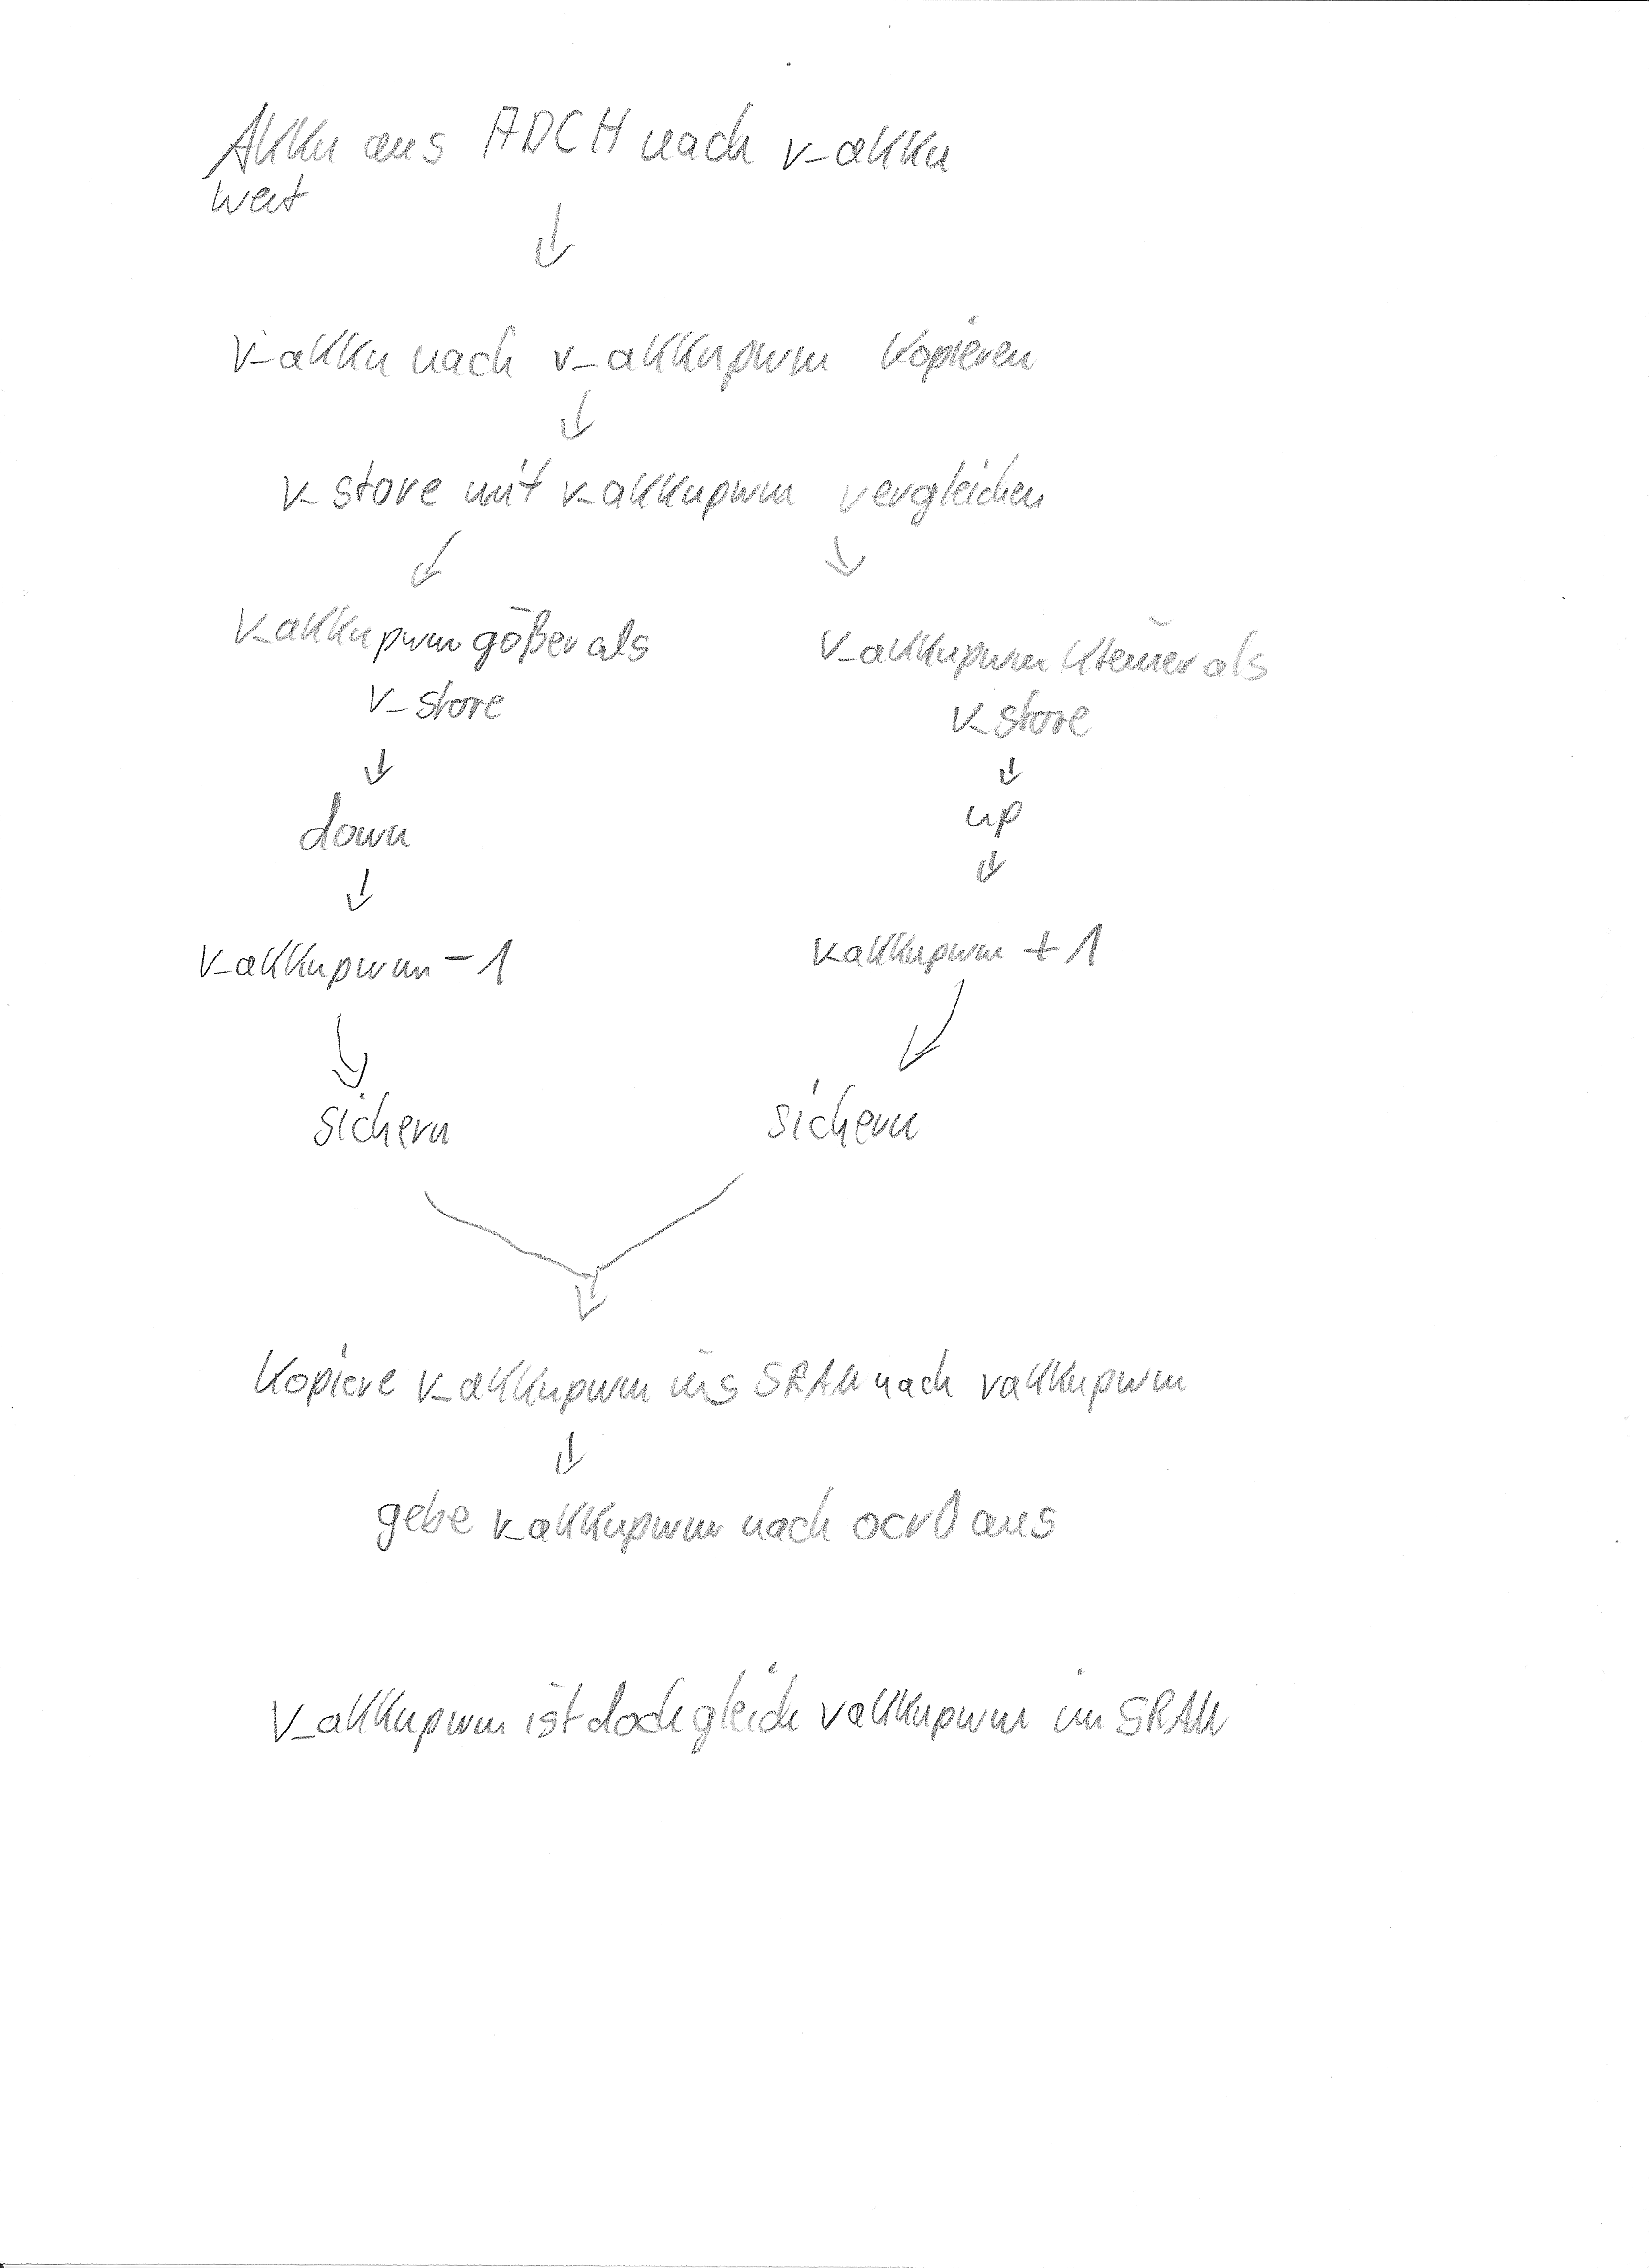 Akku aus ADCH nach v_akku
Wert
v_akku nach v_akkupwm kopieren
v_store mit v_akkupwm vergleichen
v_akkupwm gößer als
v_store
v_akkupwm kleiner als
v_store
down
up
v_akkupwm - 1
v_akkupwm + 1
sichern
sichern
kopiere v_akkupwm ins SRAM nach vakkupwm
gebe v_akkupwm nach ocr0 aus
v_akkupwm ist doch gleich vakkupwm im SRAM